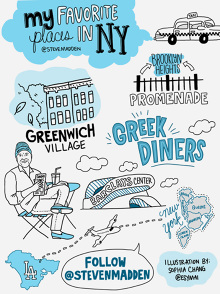 my FAVORITE
places IN NY
@STEVEMADDEN
TAXI
BROOKLYN
HEIGHTS
PROMENADE
GREENWICH
VILLAGE
GREEK
DINERS
BARCLAYS CENTER
new york
EUROPE
LA
FOLLOW
@STEVENMADDEN
ILLUSTRATION BY:
SOPHIA CHANG
@ESYMAI